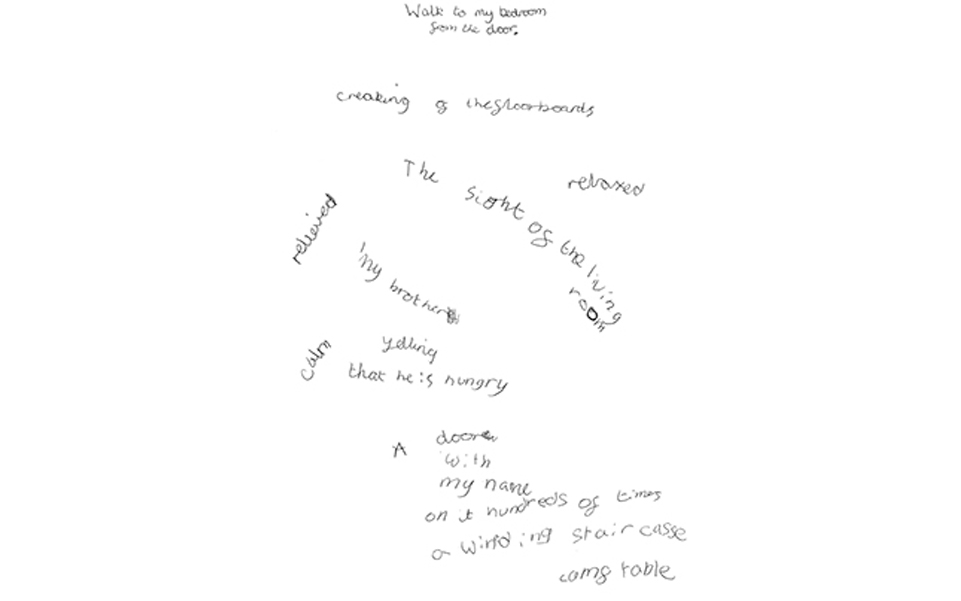 Walk to my bedroom
from the door.
creaking of the floorboards
The sight of the living room
relaxed
relieved
My brother
yelling
that he is hungry
calm
A door
with
my name
on it hundreds of times
a winding stair casse
comf table